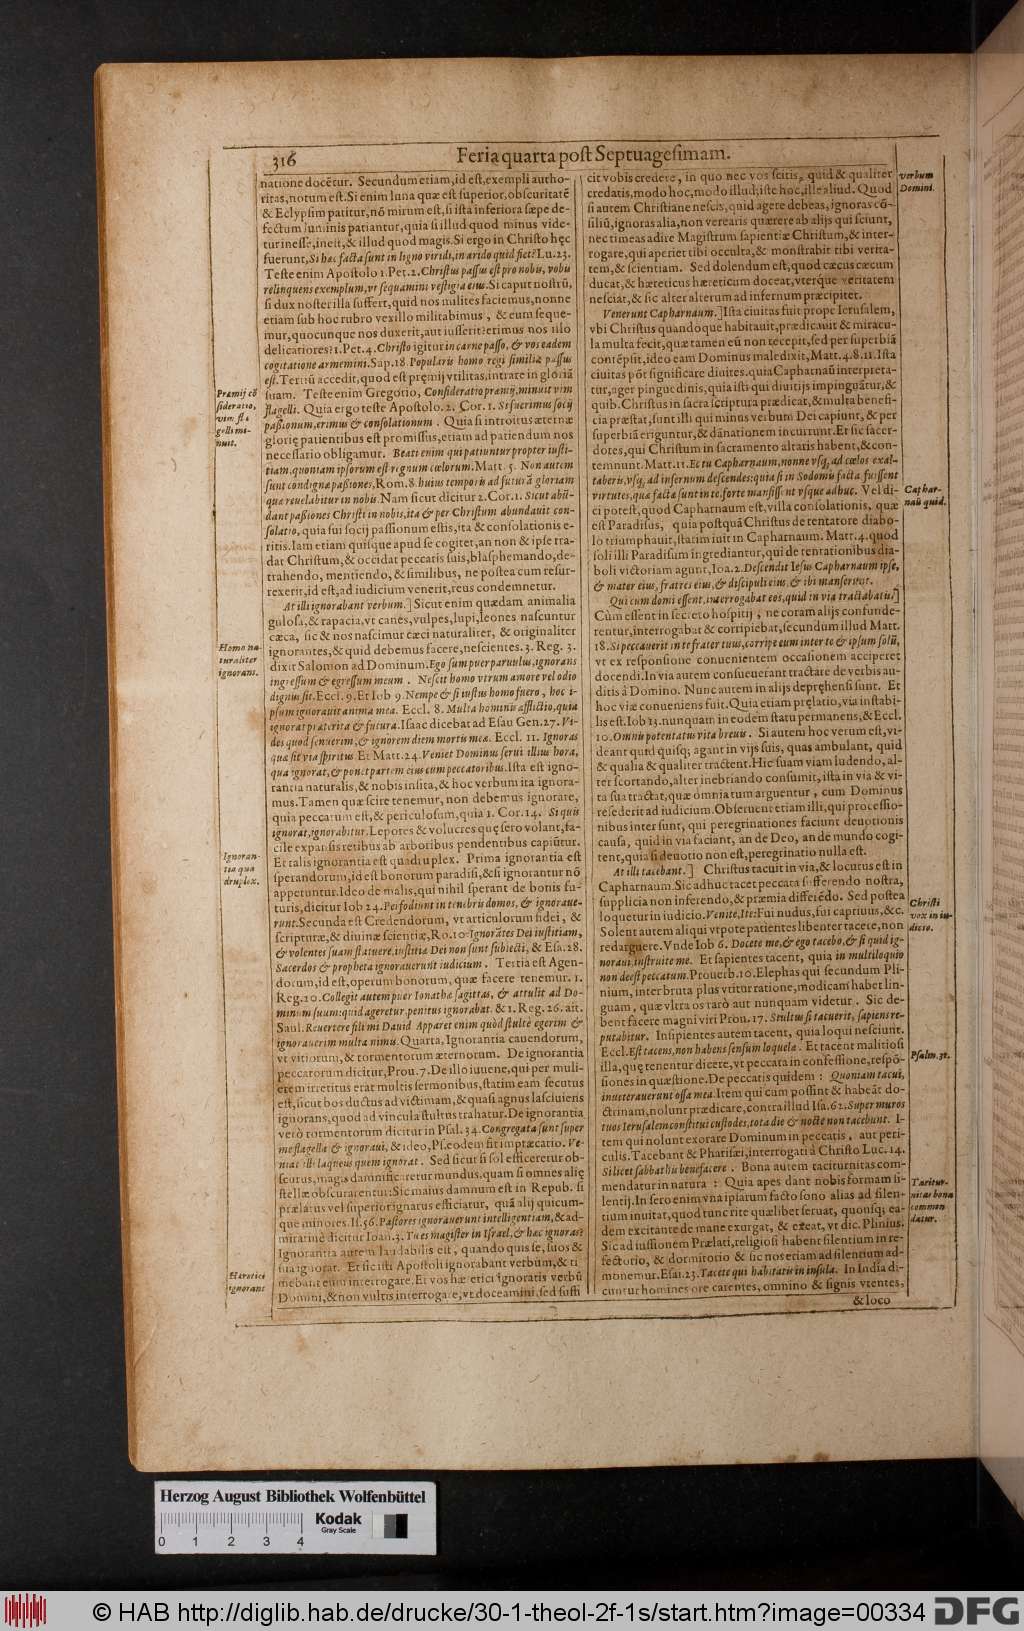 316
Feria quarta post Septuagesimam.
natione docētur. Secundum etiam, id est, exempli autho-
ritas, notum est. Si enim luna quæ est superior, obscuritatē
& Eclypsim patitur, nō mirum est, si ista inferiora sæpe de-
fectum luminis patiantur, quia si illud quod minus vide-
tur inesse, inest, & illud quod magis. Si ergo in Christo hęc
fuerunt, Si hæc facta sunt in ligno viridi, in arido quid fiet? Lu. 23.
Teste enim Apostolo 1. Pet. 2. Christus passus est pro nobis, vobis
relinquens exemplum, vt sequamini vestigia eius. Si caput nostrū,
si dux noster illa suffert, quid nos milites faciemus, nonne
etiam sub hoc rubro vexillo militabimus, & eum seque-
mur, quocunque nos duxerit, aut iusserit? erimus nos illo
delicatiores? 1. Pet. 4. Christo igitur in carne passo, & vos eadem
cogitatione armemini. Sap. 18. Popularis homo regi similia passus
est. Tertiū accedit, quod est pręmij vtilitas, intrare in gloriā
suam. Teste enim Gregorio, Consideratio præmij, minuit vim
flagelli. Quia ergo teste Apostolo. 2. Cor. 1. Si fuerimus socij
passionum, erimus & consolationum. Quia si introitus æternæ
glorię patientibus est promissus, etiam ad patiendum nos
necessario obligamur. Beati enim qui patiuntur propter iusti-
tiam, quoniam ipsorum est regnum cœlorum. Matt. 5. Non autem
sunt condignæ passiones, Rom. 8. huius temporis ad futurā gloriam
quæ reuelabitur in nobis. Nam sicut dicitur 2. Cor. 1. Sicut abū-
dant passiones Christi in nobis, ita & per Christum abundauit con-
solatio, quia sui socij passionum estis, ita & consolationis e-
ritis. Iam etiam quisque apud se cogitet, an non & ipse tra-
dat Christum, & occidat peccatis suis, blasphemando, de-
trahendo, mentiendo, & similibus, ne postea cum resur-
rexerit, id est, ad iudicium venerit, reus condemnetur.
At illi ignorabant verbum.] Sicut enim quædam animalia
gulosa, & rapacia, vt canes, vulpes, lupi, leones nascuntur
cæca, sic & nos nascimur cæci naturaliter, & originaliter
ignorantes, & quid debemus facere, nescientes. 3. Reg. 3.
dixit Salomon ad Dominum. Ego sum puer paruulus, ignorans
ingressum & egressum meum. Nescit homo vtrum amore vel odio
dignus sit. Eccl. 9. Et Iob 9. Nempe & si iustus homo fuero, hoc i-
psum ignorauit anima mea. Eccl. 8. Multa hominis afflictio, quia
ignorat præterita & futura. Isaac dicebat ad Esau Gen. 27. Vi-
des quod senuerim, & ignorem diem mortis meæ. Eccl. 11. Ignoras
quæ sit via spiritus. Et Matt. 24. Veniet Dominus serui illius hora,
qua ignorat, & ponet partem eius cum peccatoribus. Ista est igno-
rantia naturalis, & nobis insita, & hoc verbum ita ignora-
mus. Tamen quæ scire tenemur, non debemus ignorare,
quia peccatum est, & periculosum, quia 1. Cor. 14. Si quis
ignorat, ignorabitur. Lepores & volucres quę sero volant, fa-
cile expansis retibus ab arboribus pendentibus capiūtur.
Et talis ignorantia est quadruplex. Prima ignorantia est
sperandorum, id est bonorum paradisi, & si ignorantur nō
appetuntur. Ideo de malis, qui nihil sperant de bonis fu-
turis, dicitur Iob 24. Perfodiunt in tenebris domos, & ignoraue-
runt. Secunda est Credendorum, vt articulorum fidei, &
scripturæ, & diuinæ scientiæ, Ro. 10. Ignorātes Dei iustitiam,
& volentes suam statuere, iustitiæ Dei non sunt subiecti, & Esa. 28.
Sacerdos & propheta ignorauerunt iudicium. Tertia est Agen-
dorum, id est, operum bonorum, quæ facere tenemur. 1.
Reg. 20. Collegit autem puer Ionathæ sagittas, & attulit ad Do-
minum suum: quid ageretur penitus ignorabat. & 1. Reg. 26. ait.
Saul. Reuertere fili mi Dauid Apparet enim quòd stultè egerim &
ignorauerim multa nimis. Quarta, Ignorantia cauendorum,
vt vitiorum, & tormentorum æternorum. De ignorantia
peccatorum dicitur, Prou. 7. De illo iuuene, qui per muli-
erem irretitus erat multis sermonibus, statim eam secutus
est, sicut bos ductus ad victimam, & quasi agnus lasciuiens
ignorans, quod ad vincula stultus trahatur. De ignorantia
verò tormentorum dicitur in Psal. 34. Congregata sunt super
me flagella & ignoraui, & ideo, Ps. eodem fit imprecatio. Ve-
niat illi laqueus quem ignorat. Sed sicut si sol efficeretur ob-
scurus, magis damnificaretur mundus. quam si omnes alię
stellæ obscurarentur: Sic maius damnum est in Repub. si
prælatus vel superior ignarus efficiatur, quā alij quicum-
que minores. Is. 56. Pastores ignorauerunt intelligentiam, & ad-
miratiuè dicitur Ioan. 3. Tu es magister in Israel, & hæc ignoras?
Ignorantia autem laudabilis est, quando quis se, suos &
sua ignorat. Et sic isti Apostoli ignorabant verbum, & ti
mebant eum interrogare. Et vos hæretici ignoratis verbū
Domini, & non vultis interrogare, vt doceamini, sed suffi
Præmij cō
sideratio,
vim fla
gelli mi-
nuit.
Homo na-
turaliter
ignorans.
Ignoran-
tia qua
druplex.
Hæretici
ignorant
cit vobis credere, in quo nec vos scitis, quid & qualiter
credatis, modo hoc, modo illud; iste hoc, ille aliud. Quod
si autem Christiane nescis, quid agere debeas, ignoras cō-
siliū, ignoras alia, non verearis quærere ab alijs qui sciunt,
nec timeas adire Magistrum sapientiæ Christum, & inter-
rogare, qui aperiet tibi occulta, & monstrabit tibi verita-
tem, & scientiam. Sed dolendum est, quod cæcus cæcum
ducat, & hæreticus hæreticum doceat, vterque veritatem
nesciat, & sic alter alterum ad infernum præcipitet.
Venerunt Capharnaum.] Ista ciuitas fuit prope Ierusalem,
vbi Christus quandoque habitauit, prædicauit & miracu-
la multa fecit, quæ tamen eū non recepit, sed per superbiā
contēpsit, ideo eam Dominus maledixit, Matt. 4. 8. 11. Ista
ciuitas pōt significare diuites. quia Capharnaū interpreta-
tur, ager pinguedinis, quia isti qui diuitijs impinguātur, &
quib. Christus in sacra scriptura prædicat, & multa benefi-
cia præstat, sunt illi qui minus verbum Dei capiunt, & per
superbiā eriguntur, & dānationem incurrunt. Et sic sacer-
dotes, qui Christum in sacramento altaris habent, & con-
temnunt. Matt. 11. Et tu Capharnaum, nonne vsq; ad cœlos exal-
taberis, vsq; ad infernum descendes: quia si in Sodomis facta fuissent
virtutes, quæ facta sunt in te, forte mansissent vsque adhuc. Vel di-
ci potest, quod Capharnaum est, villa consolationis, quæ
est Paradisus, quia postquā Christus de tentatore diabo-
lo triumphauit, statim iuit in Capharnaum. Matt. 4. quod
soli illi Paradisum ingrediantur, qui de tentationibus dia-
boli victoriam agunt, Ioa. 2. Descendit Iesus Capharnaum ipse,
& mater eius, fratres eius, & discipuli eius, & ibi manserunt.
Qui cum domi essent, interrogabat eos, quid in via tractabatis?]
Cùm essent in secreto hospitij, ne coram alijs confunde-
rentur, interrogabat & corripiebat, secundum illud Matt.
18. Si peccauerit in te frater tuus, corripe eum inter te & ipsum solū,
vt ex responsione conuenientem occasionem acciperet
docendi. In via autem consueuerant tractare de verbis au-
ditis à Domino. Nunc autem in alijs depręhensi sunt. Et
hoc viæ conueniens fuit. Quia etiam prælatio, via instabi-
lis est. Iob 13. nunquam in eodem statu permanens, & Eccl.
10. Omnis potentatus vita breuis. Si autem hoc verum est, vi-
deant quid quisq; agant in vijs suis, quas ambulant, quid
& qualia & qualiter tractent. Hic suam viam ludendo, al-
ter scortando, alter inebriando consumit, ista in via & vi-
ta sua tractat, quæ omnia tum arguentur, cum Dominus
resederit ad iudicium. Obseruent etiam illi, qui processio-
nibus intersunt, qui peregrinationes faciunt deuotionis
causa, quid in via faciant, an de Deo, an de mundo cogi-
tent, quia si deuotio non est, peregrinatio nulla est.
At illi tacebant.] Christus tacuit in via, & locutus est in
Capharnaum. Sic adhuc tacet peccata sufferendo nostra,
supplicia non inferendo, & præmia differēdo. Sed postea
loquetur in iudicio. Venite, Ite: Fui nudus, fui captiuus, &c.
Solent autem aliqui vtpote patientes libenter tacere, non
redarguere. Vnde Iob 6. Docete me, & ego tacebo, & si quid ig-
noraui, instruite me. Et sapientes tacent, quia in multiloquio
non deest peccatum. Prouerb. 10. Elephas qui secundum Pli-
nium, inter bruta plus vtitur ratione, modicam habet lin-
guam, quæ vltra os rarò aut nunquam videtur. Sic de-
bent facere magni viri Prou. 17. Stultus si tacuerit, sapiens re-
putabitur. Insipientes autem tacent, quia loqui nesciunt.
Eccl. Est tacens, non habens sensum loquelæ. Et tacent malitiosi
illa, quę tenentur dicere, vt peccata in confessione, respō-
siones in quæstione. De peccatis quidem: Quoniam tacui,
inueterauerunt ossa mea. Item qui cum possint & habeāt do-
ctrinam, nolunt prædicare, contra illud Isa. 62. Super muros
tuos Ierusalem constitui custodes, tota die & nocte non tacebunt. I-
tem qui nolunt exorare Dominum in peccatis, aut peri-
culis. Tacebant & Pharisæi, interrogati à Christo Luc. 14.
Si licet sabbathis benefacere. Bona autem taciturnitas com-
mendatur in natura: Quia apes dant nobis formam si-
lentij. In sero enim vna ipsarum facto sono alias ad silen-
tium inuitat, quod tunc rite quælibet seruat, quousq; ea-
dem excitante de mane exurgat, & exeat, vt dic. Plinius.
Sic ad iussionem Prælati, religiosi habent silentium in re-
fectorio, & dormitorio & sic nos etiam ad silentium ad-
monemur. Esai. 23. Tacete qui habitatis in insula. In India di-
cuntur homines ore carentes, omnino & signis vtentes,
& loco
verbum
Domini.
Caphar-
naū quid.
Christi
vox in iu-
dicio.
Psalm. 31.
Tacitur-
nitas bona
commen
datur.
Herzog August Bibliothek Wolfenbüttel
Kodak
Gray Scale
0 1 2 3 4
© HAB http://diglib.hab.de/drucke/30-1-theol-2f-1s/start.htm?image=00334
DFG